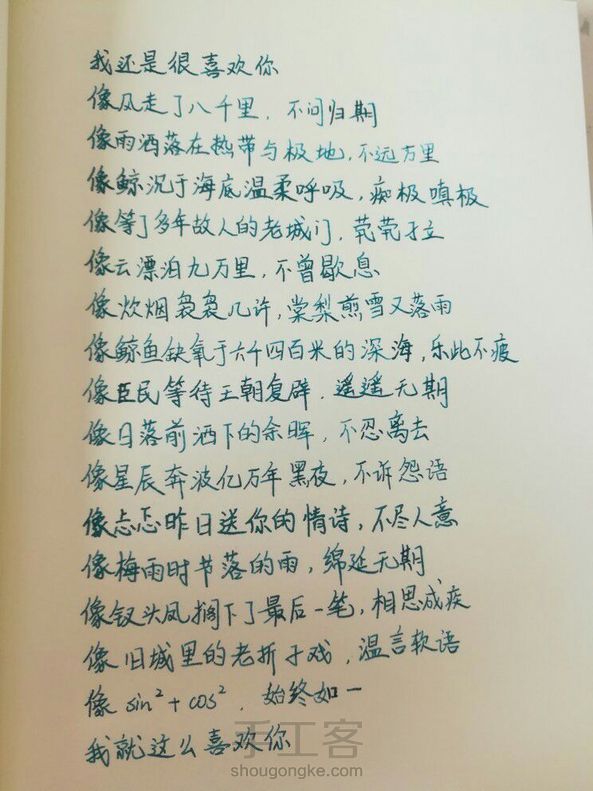 我还是很喜欢你
像风走了八千里，不问归期
像雨洒落在热带与极地，不远万里
像鲸沉于海底温柔呼吸，痴极嗔极
像等了多年故人的老城门，茕茕孑立
像云漂泊九万里，不曾歇息
像炊烟袅袅几许，棠梨煎雪又落雨
像鲸鱼缺氧于六千四百米的深海，乐此不疲
像臣民等待王朝复辟，遥遥无期
像日落前洒下的余晖，不忍离去
像星辰奔波亿万年黑夜，不诉怨语
像忐忑昨日送你的情诗，不尽人意
像梅雨时节落的雨，绵延无期
像钗头凤搁下了最后一笔，相思成疾
像旧城里的老折子戏，温言软语
像 sin²+cos²，始终如一
我就这么喜欢你
手工客
shougongke.com